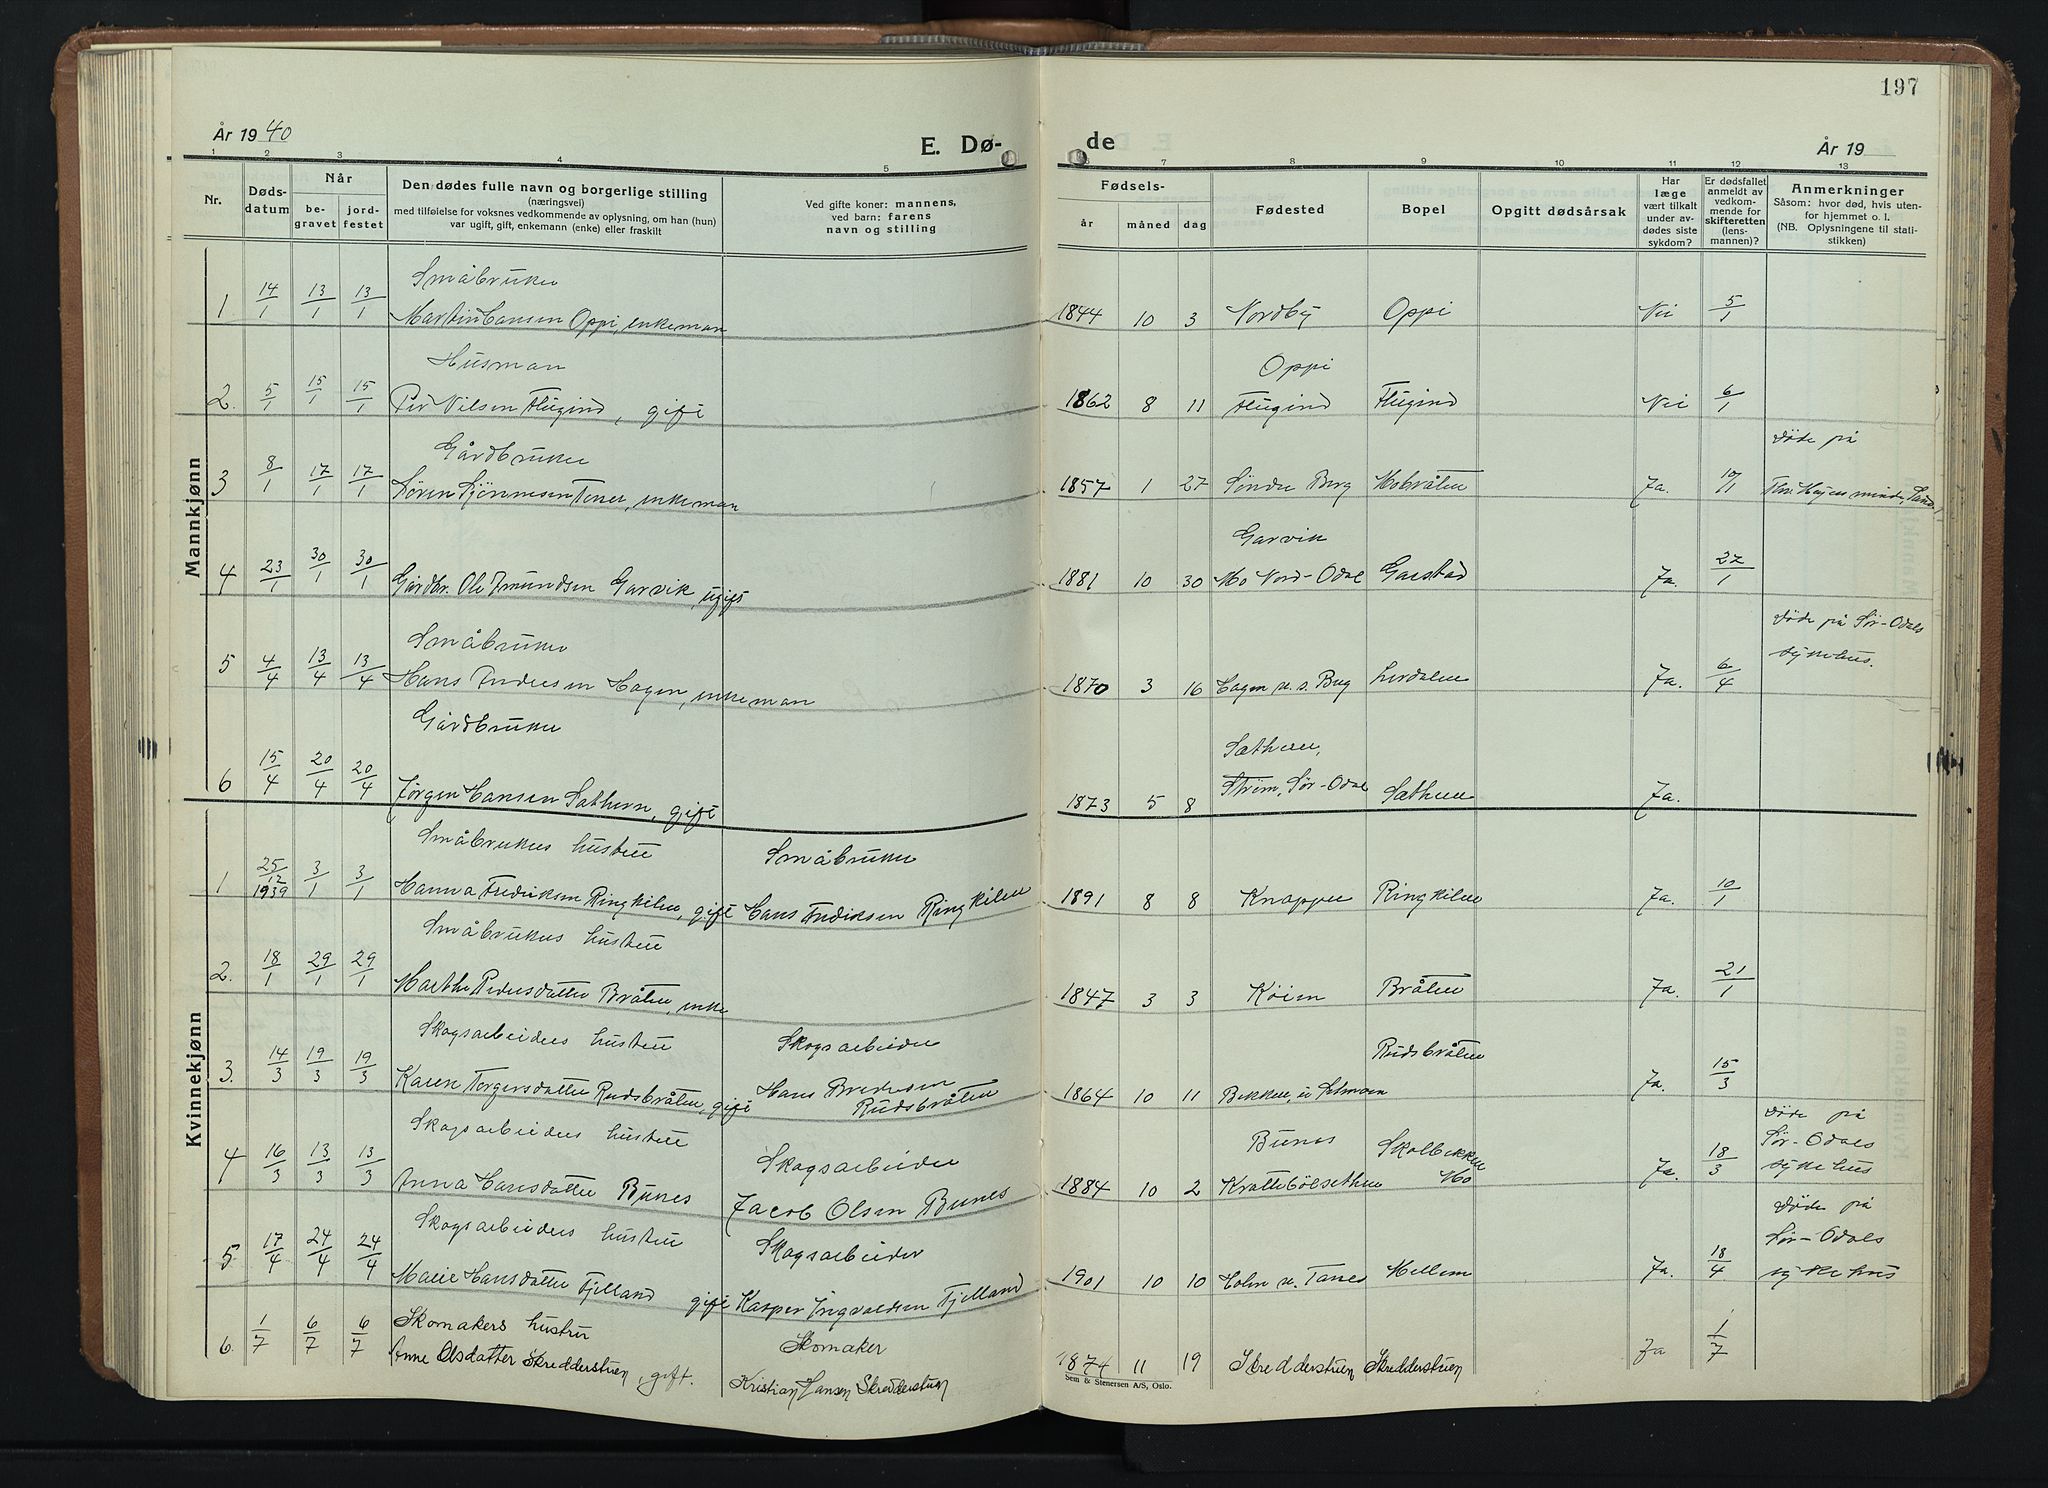 197
År 1940
E. Dø-
de
År 19
1 2 3 4 5
6 7 8 9 10 11 12 13
Nr.
Døds-
datum
Når
be-
gravet
jord-
festet
Den dødes fulle navn og borgerlige stilling
(næringsvei)
med tilføielse for voksnes vedkommende av oplysning, om han (hun)
var ugift, gift, enkemann (enke) eller fraskilt
Ved gifte koner: mannens,
ved barn: farens
navn og stilling
Fødsels-
år måned dag
Fødested
Bopel
Opgitt dødsårsak
Har
læge
vært tilkalt
under av-
dødes siste
sykdom?
Er dødsfallet
anmeldt av
vedkom-
mende for
skifteretten
(lens-
mannen)?
Anmerkninger
Såsom: hvor død, hvis uten-
for hjemmet o. l.
(NB. Oplysningene til stati-
stikken)
Mannkjønn
Småbruker
1 14/1 13/1 13/1 Martin Hansen Oppi, enkeman 1844 10 3 Nordby Oppi Nei 5/1
Husman Oppi
2. 5/1 15/1 15/1 Per Nilsen Flugind, gift 1862 8 11 Flugind Flugind Nei 6/1
Gårdbruker døde på
3 8/1 17/1 17/1 Sören Tener, enkeman 1857 1 27 Søndre Berg Mobråten Ja. 10/1 minde, Sand
Garvik
4 23/1 30/1 30/1 Gårdbr. Ole Amundsen Garvik, ugift 1881 10 30 Mo Nord-Odal Garstad Ja. 22/1
Småbruker døde på Sør-Odals
5 4/4 13/4 13/4 Hans Andersen Hagen, enkeman 1870 3 16 Hagen u. s. Berg Lierdalen Ja. 6/4 sykehus.
Gårdbruker Sæthern,
6 15/4 20/4 20/4 Jørgen Hansen Sæthern, gift 1873 5 8 Strøm, Sør-Odal Sæthern Ja.
Kvinnekjønn
Småbrukers hustru Småbruker
1 25/12 1939 3/1 3/1 Hanna Fredriksen Ringkilen, gift Hans Fredriksen Ringkilen 1891 8 8 Knappen Ringkilen Ja. 10/1
Småbrukers hustru
2. 18/1 29/1 29/1 Marthe Pedersdatter Bråten, enke 1847 3 3 Köien Bråten Ja. 21/1
Skogsarbeiders hustru Skogsarbeider Rudsbråten
3. 14/3 19/3 19/3 Karen Torgersdatter Rudsbråten, gift Hans Bredesen Rudsbråten 1864 10 11 Bekken, u Ja. 15/3
Skogsarbeiders hustru Skogsarbeider Bunes Skolbekken døde på
4 16/3 13/3 13/3 Anna Hansdatter Bunes Jacob Olsen Bunes 1884 10 2 Krattebölsethern Mo Ja. 18/3 Sør-Odals sykehus
Skogsarbeiders hustru Skogsarbeider døde på
5. 17/4 24/4 24/4 Marie Hansdatter Fjelland gift Kasper Ingvaldsen Fjelland 1901 10 10 Holm u. Tanes Mellem Ja. 18/4 Sør-Odals sykehus
Skomakers hustru Skomaker
6. 1/7 6/7 6/7 Anne Olsdatter Skredderstuen, gift. Kristian Hansen Skredderstuen 1874 11 19 Skredderstuen Skredderstuen Ja 1/7
Sem & Stenersen A/S, Oslo.